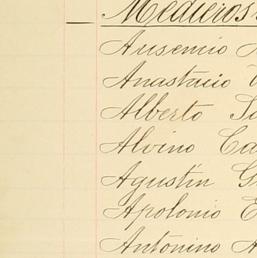 Medieros
Ausencio
Anastacio
Alberto
Alvino
Agustín
Apolonio
Antonino